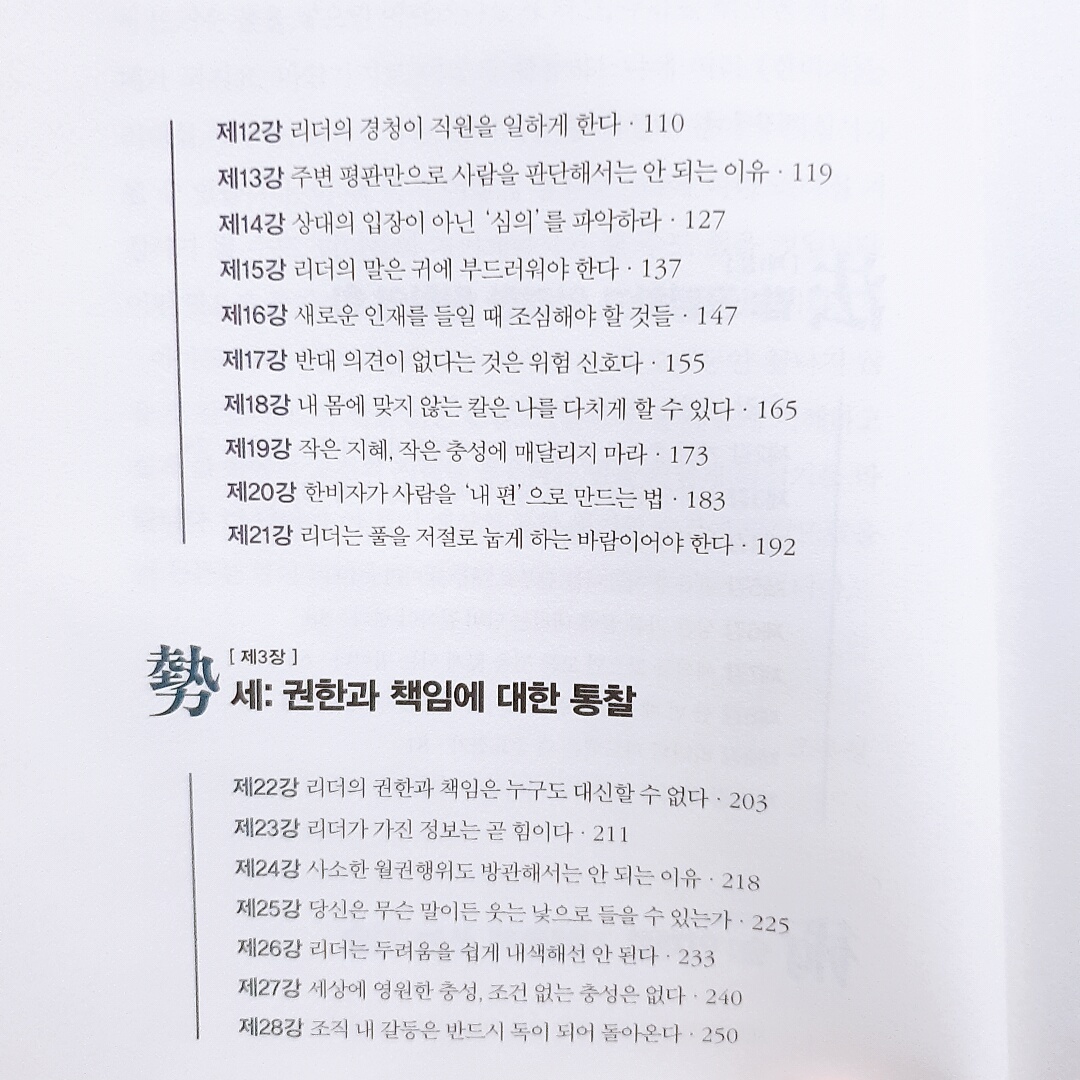 제12강 리더의 경청이 직원을 일하게 한다 · 110
제13강 주변 평판만으로 사람을 판단해서는 안 되는 이유 · 119
제14강 상대의 입장이 아닌 ‘심의’를 파악하라 · 127
제15강 리더의 말은 귀에 부드러워야 한다 · 137
제16강 새로운 인재를 들일 때 조심해야 할 것들 · 147
제17강 반대 의견이 없다는 것은 위험 신호다 · 155
제18강 내 몸에 맞지 않는 칼은 나를 다치게 할 수 있다 · 165
제19강 작은 지혜, 작은 충성에 매달리지 마라 · 173
제20강 한비자가 사람을 ‘내 편’으로 만드는 법 · 183
제21강 리더는 풀을 저절로 눕게 하는 바람이어야 한다 · 192
[ 제3장 ]
勢 세: 권한과 책임에 대한 통찰
제22강 리더의 권한과 책임은 누구도 대신할 수 없다 · 203
제23강 리더가 가진 정보는 곧 힘이다 · 211
제24강 사소한 월권행위도 방관해서는 안 되는 이유 · 218
제25강 당신은 무슨 말이든 웃는 낯으로 들을 수 있는가 · 225
제26강 리더는 두려움을 쉽게 내색해선 안 된다 · 233
제27강 세상에 영원한 충성, 조건 없는 충성은 없다 · 240
제28강 조직 내 갈등은 반드시 독이 되어 돌아온다 · 250